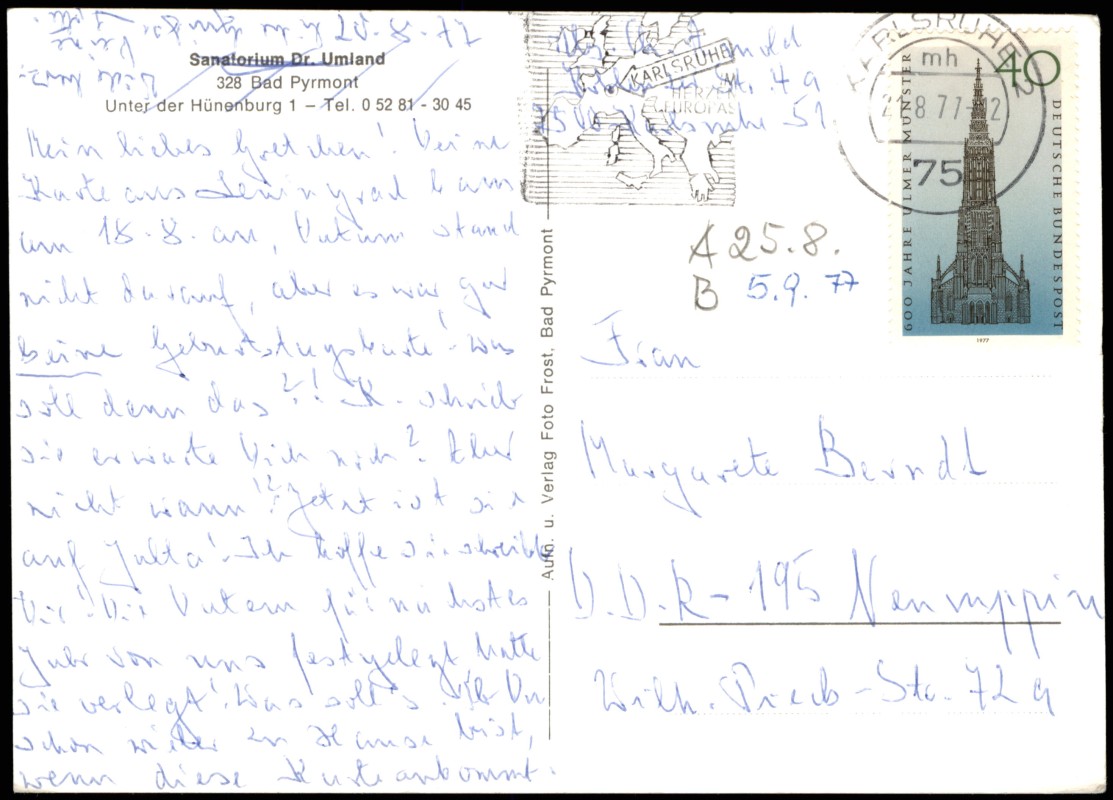 Sanatorium Dr. Umland
328 Bad Pyrmont
Unter der Hünenburg 1 – Tel. 0 52 81 - 30 45
Mein liebes Gretchen! Deine
Karte aus Leningrad kam
am 18.8. an, Datum stand
nicht darauf, aber es war gar
keine Geburtstagskarte! Was
soll denn das?! K. schrieb
sie erwarte Dich noch? Aber
nicht wann!? Jetzt ist sie
auf Jalta! Ich hoffe sie schreibt
Dir! Die Datum für nächstes
Jahr von uns festgelegt hatte
sie verlegt! Was soll's. Ob Du
schon wieder zu Hause bist,
wenn diese Karte ankommt.
Aufn. u. Verlag Foto Frost, Bad Pyrmont
KARLSRUHE
HERZEN
EUROPAS
Str. 4 a
Karlsruhe 51.
KARLSRUHE 2
mh
8.77-12
75
40
600 JAHRE ULMER MÜNSTER
DEUTSCHE BUNDESPOST
1977
A 25.8.
B 5.9.77
Frau
Margarete Berndt
D.D.R - 195 Neuruppin
Wilh. Pieck - Str. 72 a